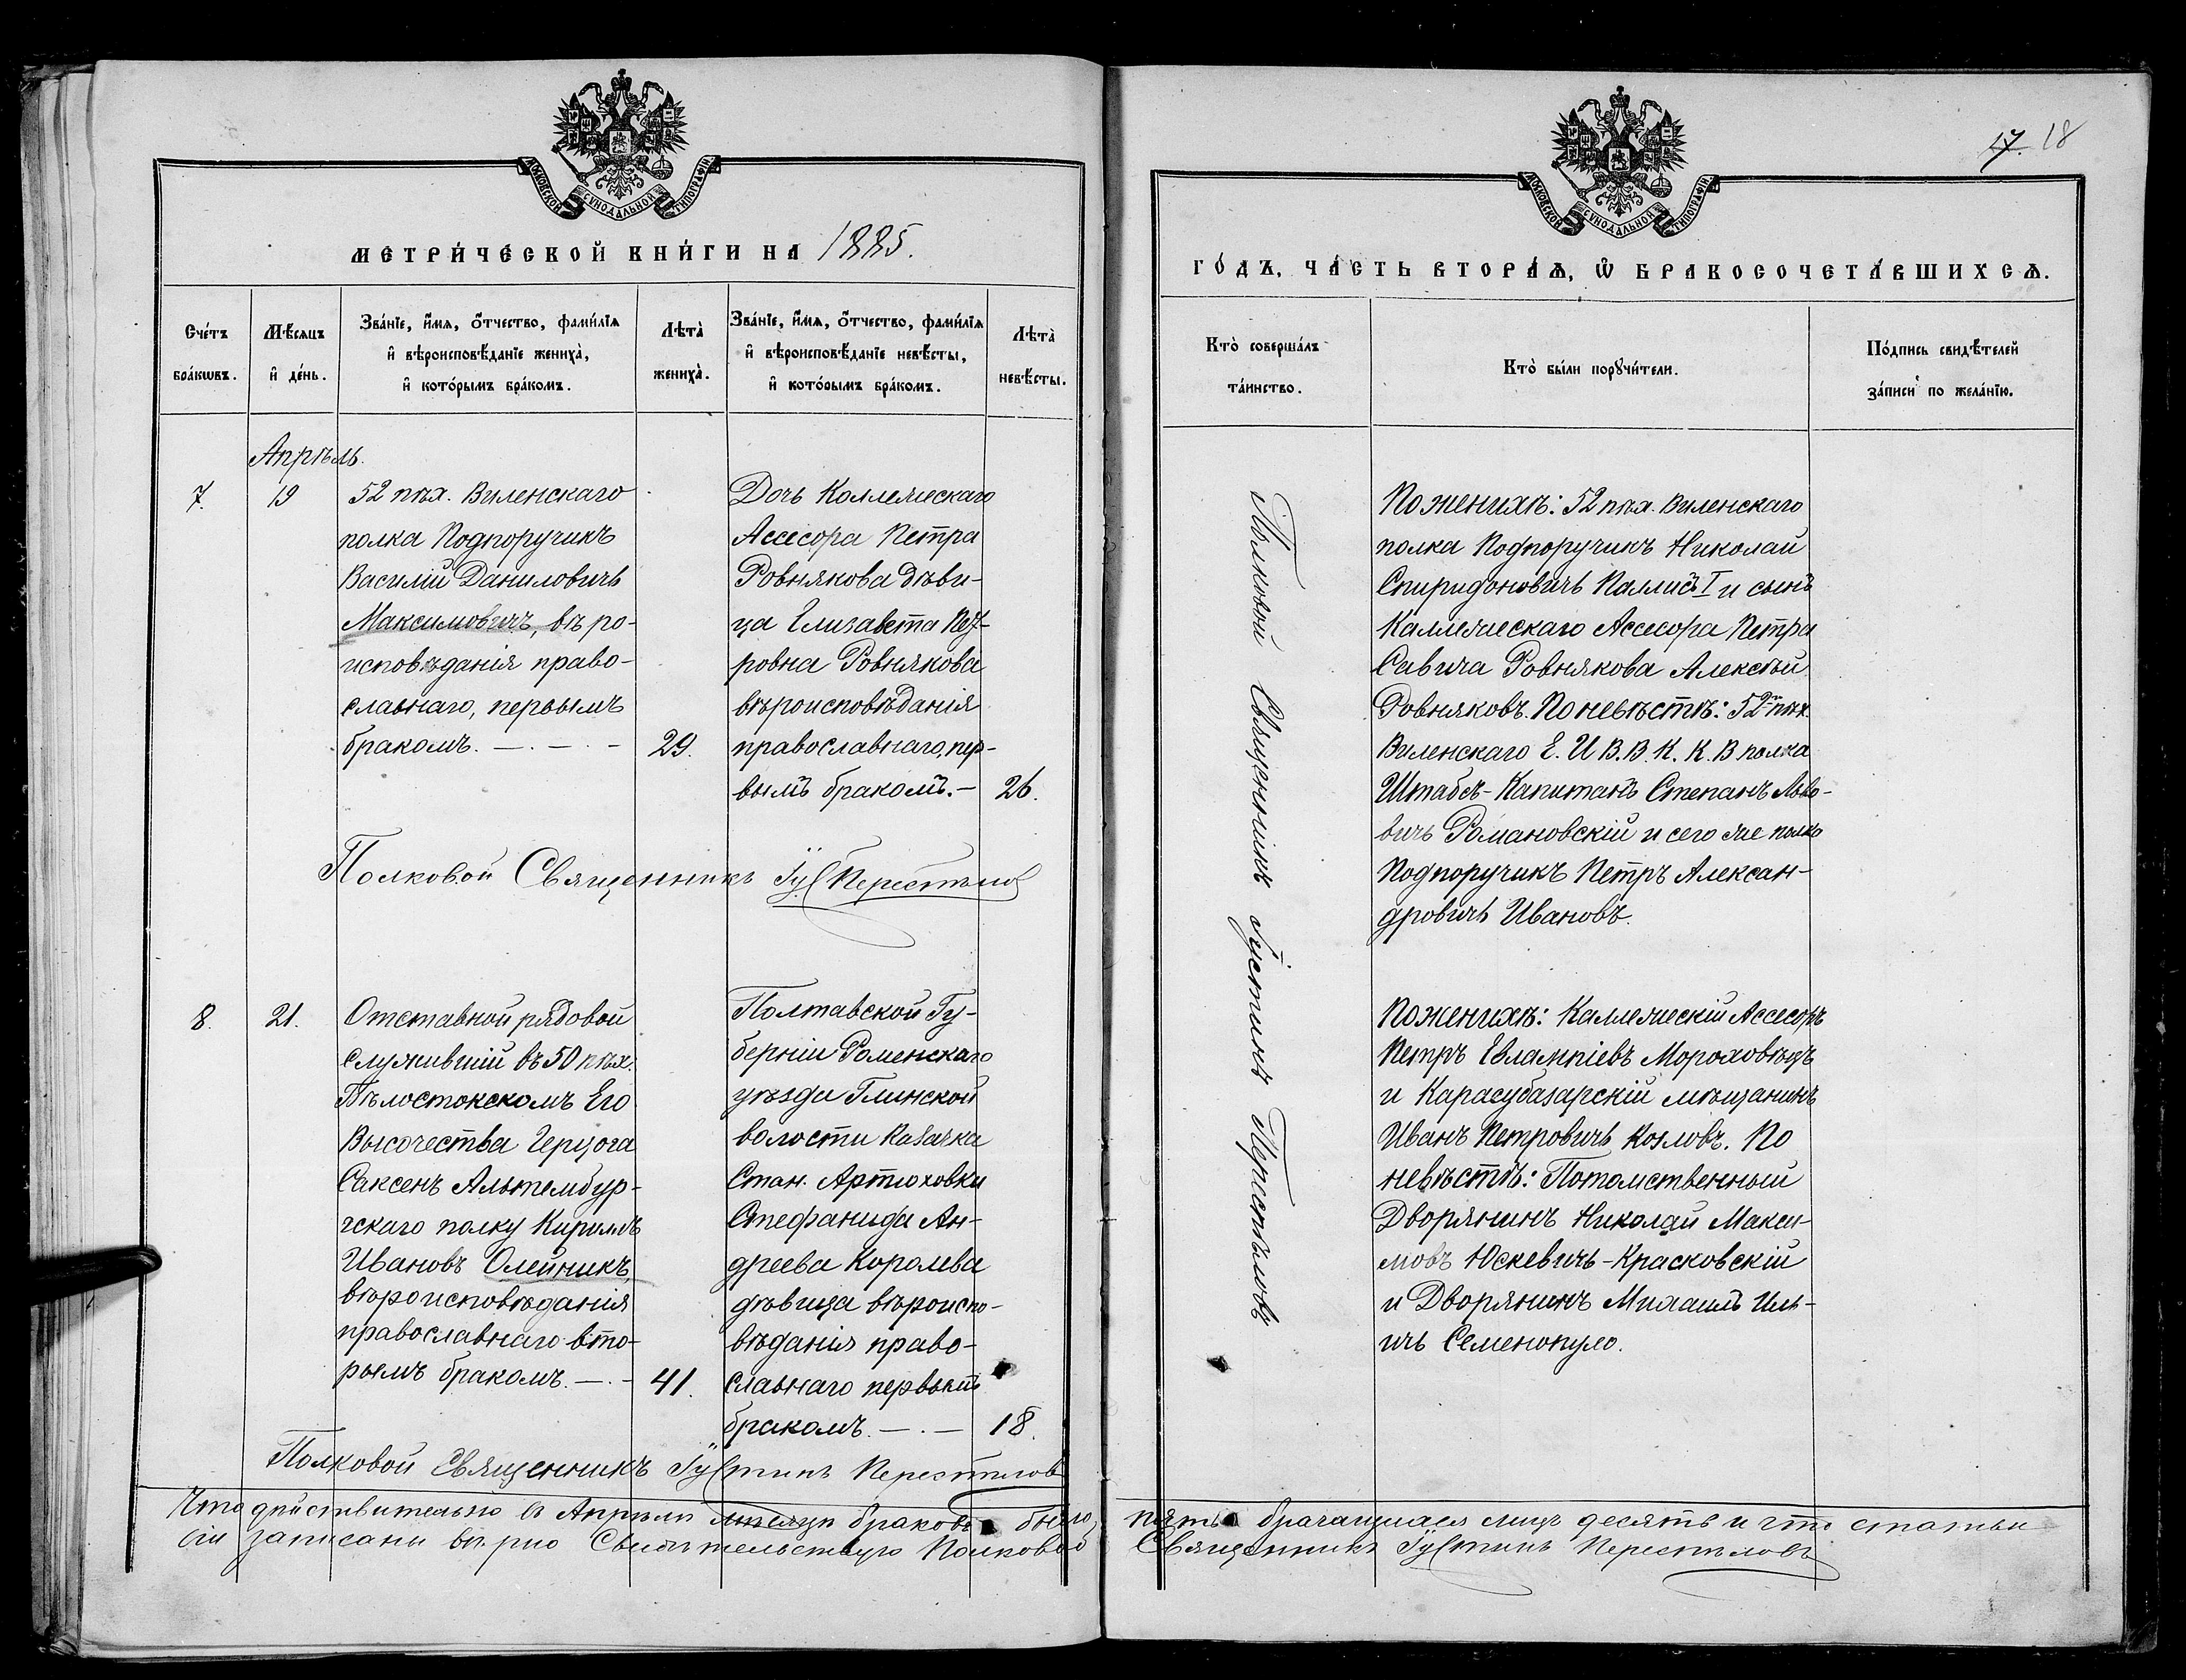 МОСКОВСКОЙ СУНОДАЛЬНОЙ ТИПОГРАФІИ
МЕТРИ́ЧЕСКОЙ КНИ́ГИ НА 1885.
Сче́тъ бра́кѡвъ.
Мѣ́сяцъ и҆ де́нь.
Зва́нїе, и҆́мѧ, ѻ҆́тчество, фами́лїѧ
и҆ вѣроисповѣ́данїе жениха̀,
и҆ кото́рымъ бра́комъ.
Лѣта̀ жениха̀.
Зва́нїе, и҆́мѧ, ѻ҆́тчество, фами́лїѧ
и҆ вѣроисповѣ́данїе невѣ́сты,
и҆ кото́рымъ бра́комъ.
Лѣта̀ невѣ́сты.
Апрѣль.
7.
19
52 пѣх. Виленскаго
полка Подпоручикъ
Василій Даниловичъ
Максимовичъ, вѣро-
исповѣданія право-
славнаго, первымъ
бракомъ. —.—.—
29.
Дочь Коллежскаго
Ассесора Петра
Ровнякова дѣви-
ца Елизавета Пет-
ровна Ровнякова
вѣроисповѣданія
православнаго, пер-
вымъ бракомъ. —
26.
Полковой Священникъ Іуст Перестыло
8.
21.
Отставной рядовой
служившій въ 50 пѣх.
Бѣлостокскомъ Его
Высочества Герцога
Саксенъ Альтембур-
гскаго полку Кириллъ
Ивановъ Олейникъ,
вѣроисповѣданія
православнаго вто-
рымъ бракомъ. —.—
41.
Полтавской Гу-
берніи Роменскаго
уѣзда Глинской
волости Казачка
Стан. Артюховки
Стефанида Ан-
дреева Королева
дѣвица вѣроиспо-
вѣданія право-
славнаго первымъ
бракомъ. —.—
18.
Полковой Священникъ Іустинъ Перестыловъ
Что дѣйствительно въ Апрѣлѣ мѣсяцѣ браковъ было
сіи записаны вѣрно Свидѣтельствую Полковой
МОСКОВСКОЙ СУНОДАЛЬНОЙ ТИПОГРАФІИ
17. 18
ГО́ДЪ, ЧА́СТЬ ВТОРА́Ѧ, Ѽ БРАКОСОЧЕТА́ВШИХСѦ.
Кто̀ соверша́лъ
та́инство.
Кто̀ бы́ли порꙋчи́тели.
По́дпись свидѣ́телей
за́писи по жела́нїю.
Полковой Священникъ Іустинъ Перестыловъ
По женихѣ: 52 пѣх. Виленскаго
полка Подпоручикъ Николай
Спиридоновичъ Паллисъ I и сынъ
Каллежскаго Ассесора Петра
Савича Ровнякова Алексѣй
Ровняковъ. По невѣстѣ: 52го пѣх.
Виленскаго Е. И В. В. К. К. В полка
Штабсъ-Капитанъ Степанъ Льво-
вичъ Романовскій и сего же полка
Подпоручикъ Петръ Алексан-
дровичъ Ивановъ.
По женихѣ: Каллежскій Ассесоръ
Петръ Евлампіевъ Мороховецъ
и Карасубазарскій мѣщанинъ
Иванъ Петровичъ Козловъ. По
невѣстѣ: Потомственный
Дворянинъ Николай Макси-
мовъ Юскевичъ-Красковскій
и Дворянинъ Михаилъ Иль-
ичъ Семенопуло.
пять брачащихся лицъ десять и что статьи
Священникъ Іустинъ Перестыловъ